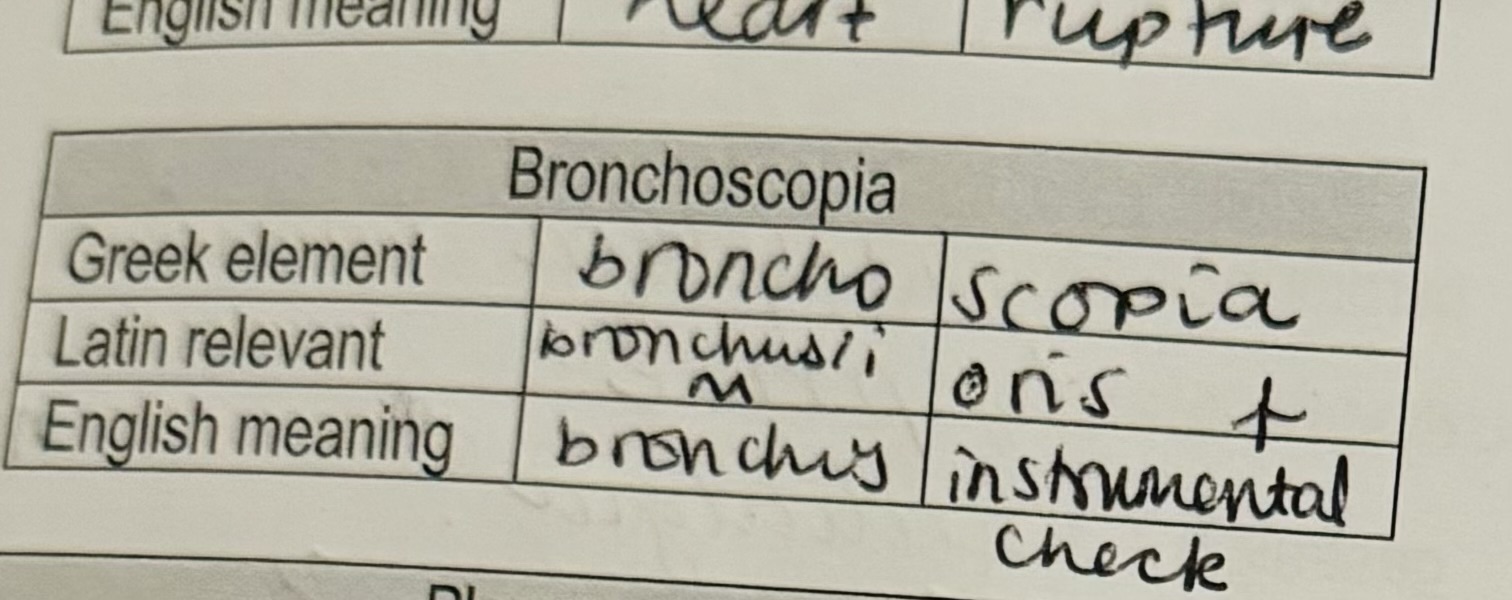 English meaning heart rupture
Bronchoscopia
Greek element broncho scopia
Latin relevant bronchus,i oris f
m
English meaning bronchus instrumental
check